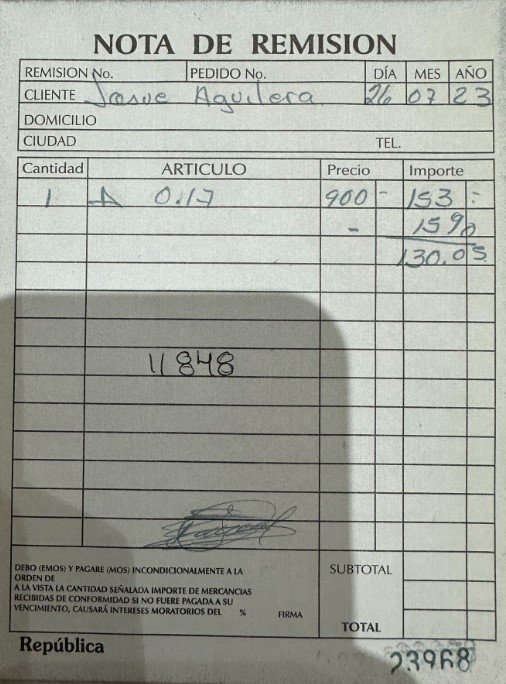 NOTA DE REMISION
REMISION No. PEDIDO No. DÍA MES AÑO
CLIENTE Josue Aguilera 26 07 23
DOMICILIO
CIUDAD TEL.
Cantidad ARTICULO Precio Importe
1 A 0.17 900 - 153 -
- 15%
130.05
11848
DEBO (EMOS) Y PAGARE (MOS) INCONDICIONALMENTE A LA
ORDEN DE
A LA VISTA LA CANTIDAD SEÑALADA IMPORTE DE MERCANCIAS
RECIBIDAS DE CONFORMIDAD SI NO FUERE PAGADA A SU
VENCIMIENTO, CAUSARÁ INTERESES MORATORIOS DEL % FIRMA
SUBTOTAL
TOTAL
República
23968